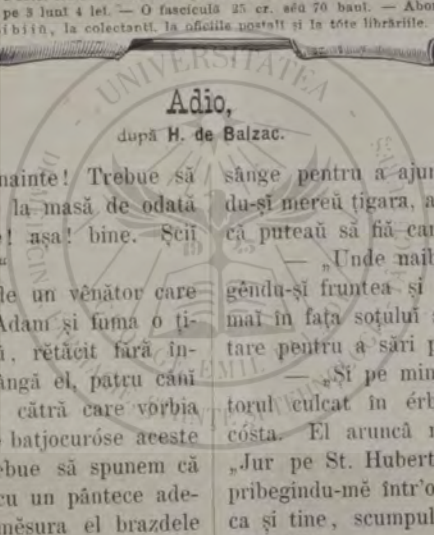 pe 3 luni 4 lei. — O fasciculă 25 cr. séu 70 bani. — Abon
la colectanți, la oficiile postali și la tóte librăriile.
Adio,
după H. de Balzac.
nainte! Trebue să
la masă de odată
! așa! bine. Șcii
“
le un vênător care
Adam și fuma o ți-
, rětăcit fără în-
ângă el, patru câni
cătră care vorbia
batjocuróse aceste
ebue să spunem că
cu un pântece ade-
měsura el brazdele
sânge pentru a ajun
du-șĭ mereŭ țigara, a
că puteaŭ să fiă car
— „Unde naib
gêndu-șĭ fruntea și
maĭ în fața soțuluĭ
tare pentru a sări p
— „Șĭ pe min
torul culcat în érb
cósta. El aruncă
„Jur pe St. Hubert
pribegindu-mě într'o
ca și tine, scumpul